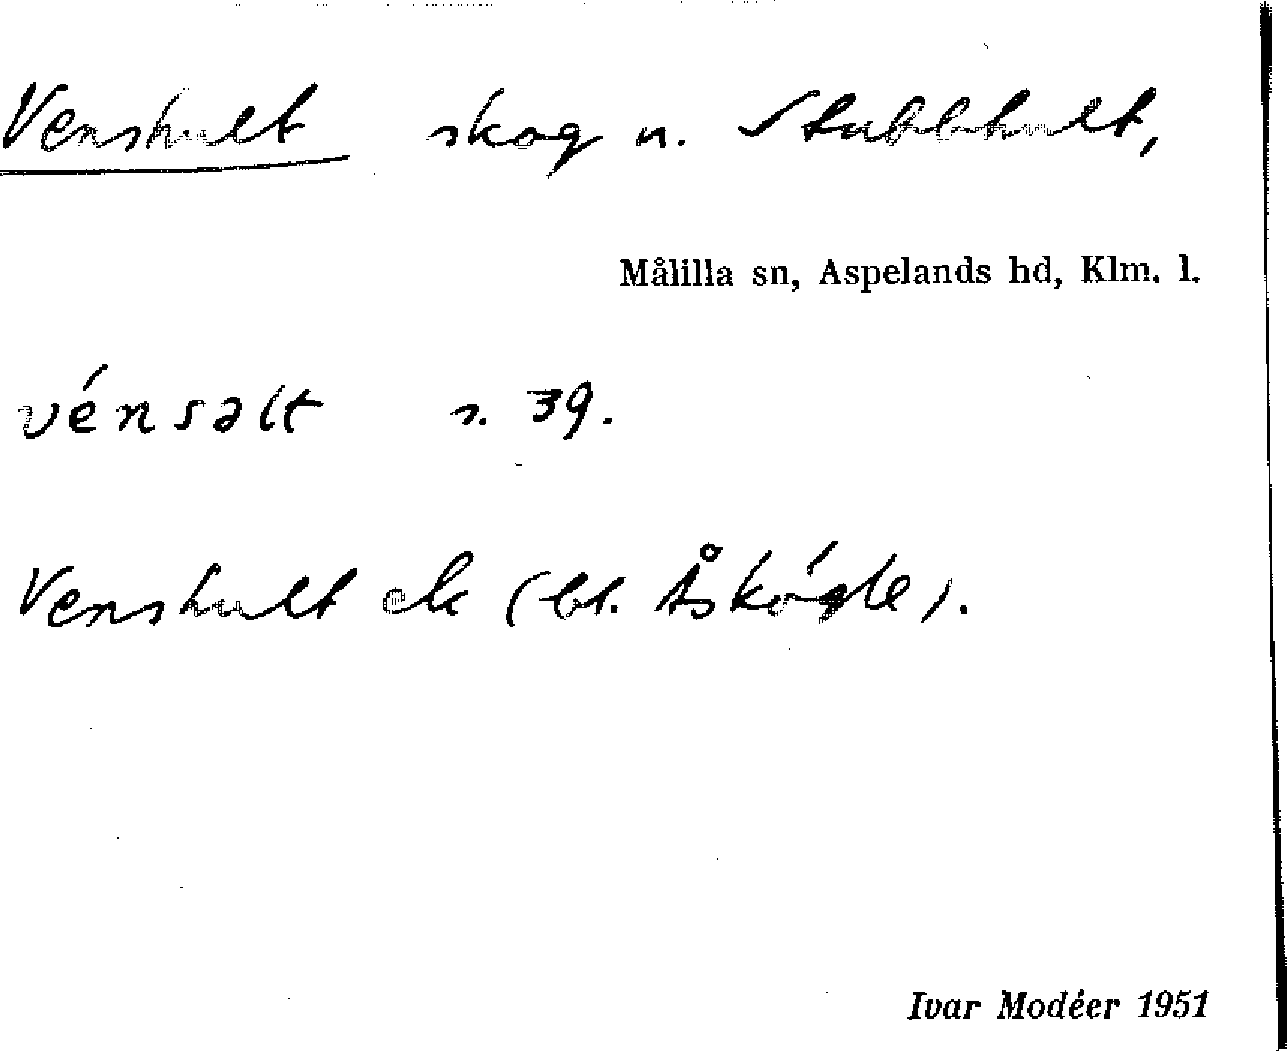 Venshult skog u. Stubbhult,
Målilla sn, Aspelands hd, Klm. l.
vénsalt s. 39.
Venshult ek (bl.
Ivar Modéer 1951